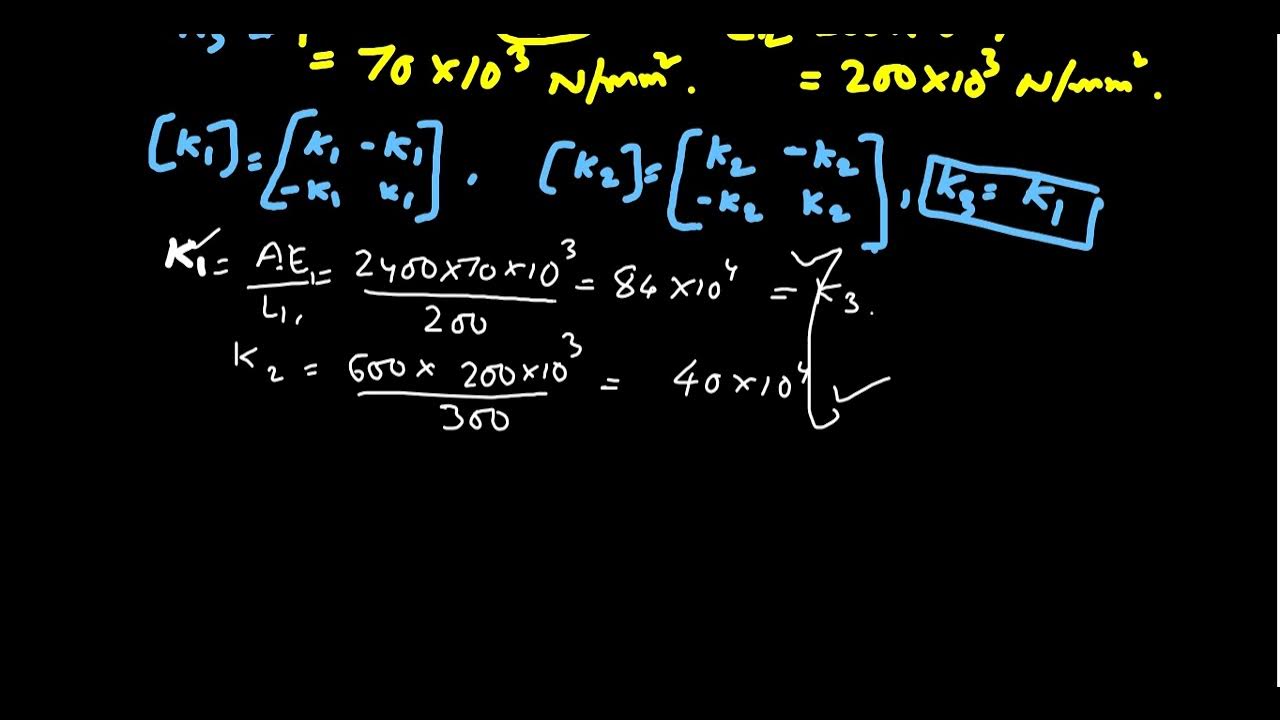 = 70 × 10³ N/mm². = 200 × 10³ N/mm².
[K₁] = [K₁ -K₁ -K₁ K₁] . [K₂] = [K₂ -K₂ -K₂ K₂] , K₃ = K₁
K₁ = A₁E₁/L₁ = 2400 × 70 × 10³/200 = 84 × 10⁴ = K₃.
K₂ = 600 × 200 × 10³/300 = 40 × 10⁴